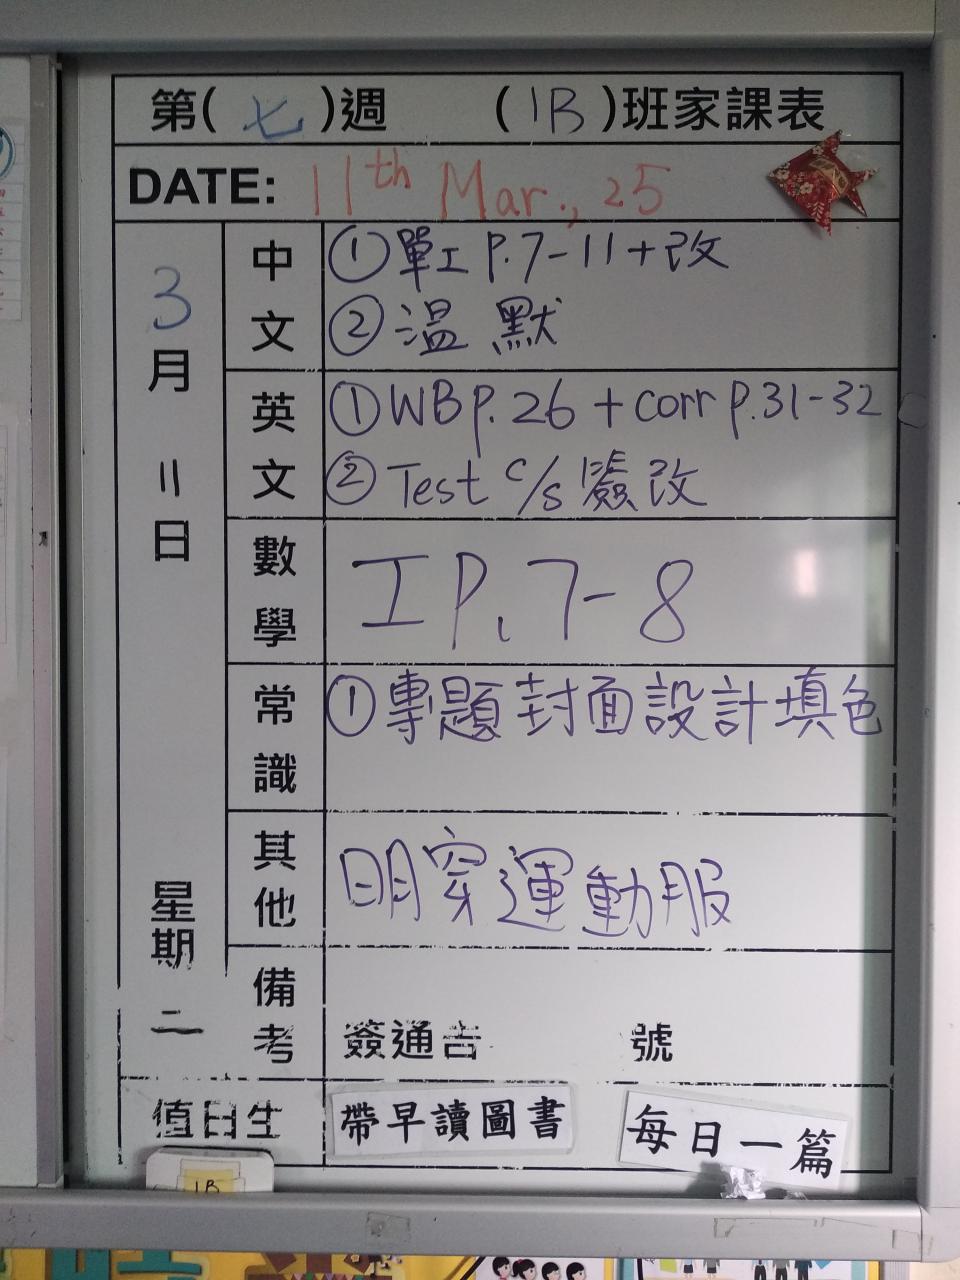 第(七)週 (1B)班家課表
DATE: 11th Mar., 25
3月11日 星期二
中文
①單工 P.7-11+改
②溫 默
英文
①WB p.26 + corr p.31-32
②Test c/s 簽改
數學
工 P.7-8
常識
①專題封面設計填色
其他
明穿運動服
備考
簽通告 號
值日生
帶早讀圖書
每日一篇
1B